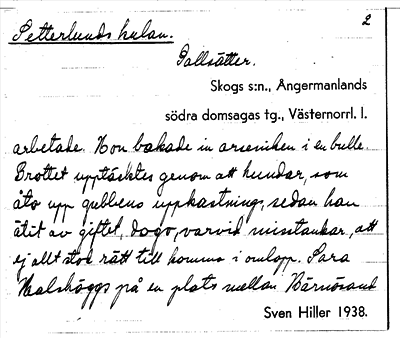 2
Setterlundskulan.
Gallsätter.
Skogs s:n., Ångermanlands
södra domsagas tg., Västernorrl. l.
arbetade. Hon bakade in arseniken i en bulle.
Brottet upptäcktes genom att hundar, som
åto upp gubbens uppkastning, sedan han
ätit av giftet, dogo, varvid misstankar, att
ej allt stod rätt till kommo i omlopp. Sara
Halshöggs på en plats mellan Härnösand
Sven Hiller 1938.